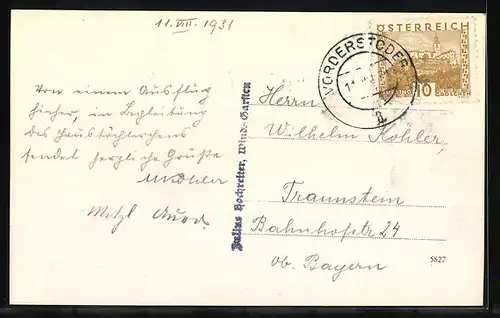 11. VIII. 1931
ÖSTERREICH
VORDERSTODER
10
GROSCHEN
Von einem Ausflug
hieher, in Begleitung
des Haustöchterchens
sendet herzliche Grüße
Julius Hochreiter, Wind.-Garsten
Herrn
Wilhelm Kohler,
Traunstein
Bahnhofstr 24
ob. Bayern
5827